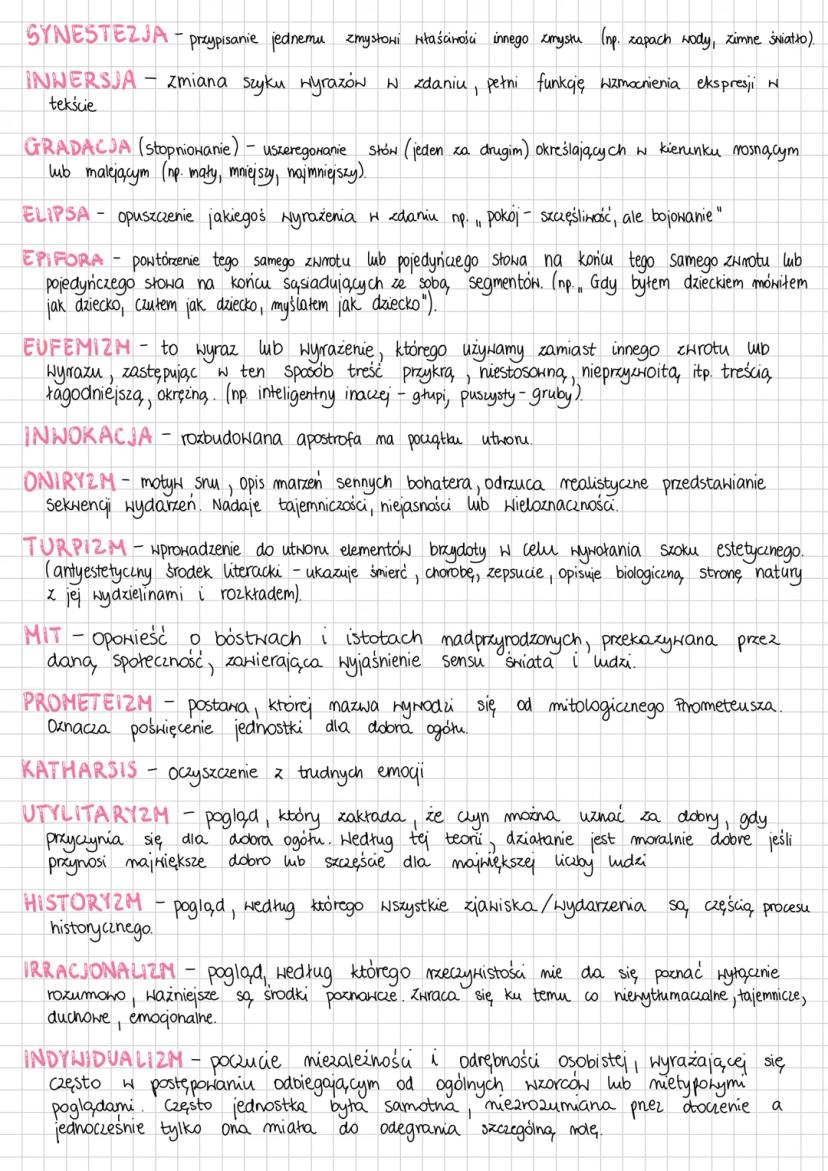 SYNESTEZJA - przypisanie jednemu zmysłowi właściwości innego zmysłu (np. zapach wody, zimne światło).
INWERSJA - zmiana szyku wyrazów w zdaniu, pełni funkcję wzmocnienia ekspresji w
tekście
GRADACJA (stopniowanie) - uszeregowanie słów (jeden za drugim) określających w kierunku rosnącym
lub malejącym (np. mały, mniejszy, najmniejszy).
ELIPSA - opuszczenie jakiegoś wyrażenia w zdaniu np. „pokój - szczęśliwość, ale bojowanie"
EPIFORA - powtórzenie tego samego zwrotu lub pojedyńczego słowa na końcu tego samego zwrotu lub
pojedyńczego słowa na końcu sąsiadujących ze sobą segmentów. (np. „Gdy byłem dzieckiem mówiłem
jak dziecko, czułem jak dziecko, myślałem jak dziecko").
EUFEMIZM - to wyraz lub wyrażenie, którego używamy zamiast innego zwrotu lub
wyrazu, zastępując w ten sposób treść przykrą, niestosowną, nieprzyzwoitą itp. treścią
łagodniejszą, okrężną. (np. inteligentny inaczej - głupi, puszysty - gruby)
INWOKACJA - rozbudowana apostrofa na początku utworu.
ONIRYZM - motyw snu, opis marzeń sennych bohatera, odrzuca realistyczne przedstawianie
sekwencji wydarzeń. Nadaje tajemniczości, niejasności lub wieloznaczności.
TURPIZM - wprowadzenie do utworu elementów brzydoty w celu wywołania szoku estetycznego.
(antyestetyczny środek literacki - ukazuje śmierć, chorobę, zepsucie, opisuje biologiczną stronę natury
z jej wydzielinami i rozkładem).
MIT - opowieść o bóstwach i istotach nadprzyrodzonych, przekazywana przez
daną społeczność, zawierająca wyjaśnienie sensu świata i ludzi.
PROMETEIZM - postawa, której nazwa wywodzi się od mitologicznego Prometeusza.
Oznacza poświęcenie jednostki dla dobra ogółu.
KATHARSIS - oczyszczenie z trudnych emocji
UTYLITARYZM - pogląd, który zakłada, że czyn można uznać za dobry, gdy
przyczynia się dla dobra ogółu. Według tej teorii, działanie jest moralnie dobre jeśli
przynosi największe dobro lub szczęście dla największej liczby ludzi
HISTORYZM - pogląd, według którego wszystkie zjawiska/wydarzenia są częścią procesu
historycznego.
IRRACJONALIZM - pogląd, według którego rzeczywistości nie da się poznać wyłącznie
rozumowo, ważniejsze są środki poznawcze. Zwraca się ku temu co niewytłumaczalne, tajemnicze,
duchowe, emocjonalne.
INDYWIDUALIZM - poczucie niezależności i odrębności osobistej, wyrażającej się
często w postępowaniu odbiegającym od ogólnych wzorców lub nietypowymi
poglądami. Często jednostka była samotna, niezrozumiana przez otoczenie a
jednocześnie tylko ona miała do odegrania szczególną rolę.